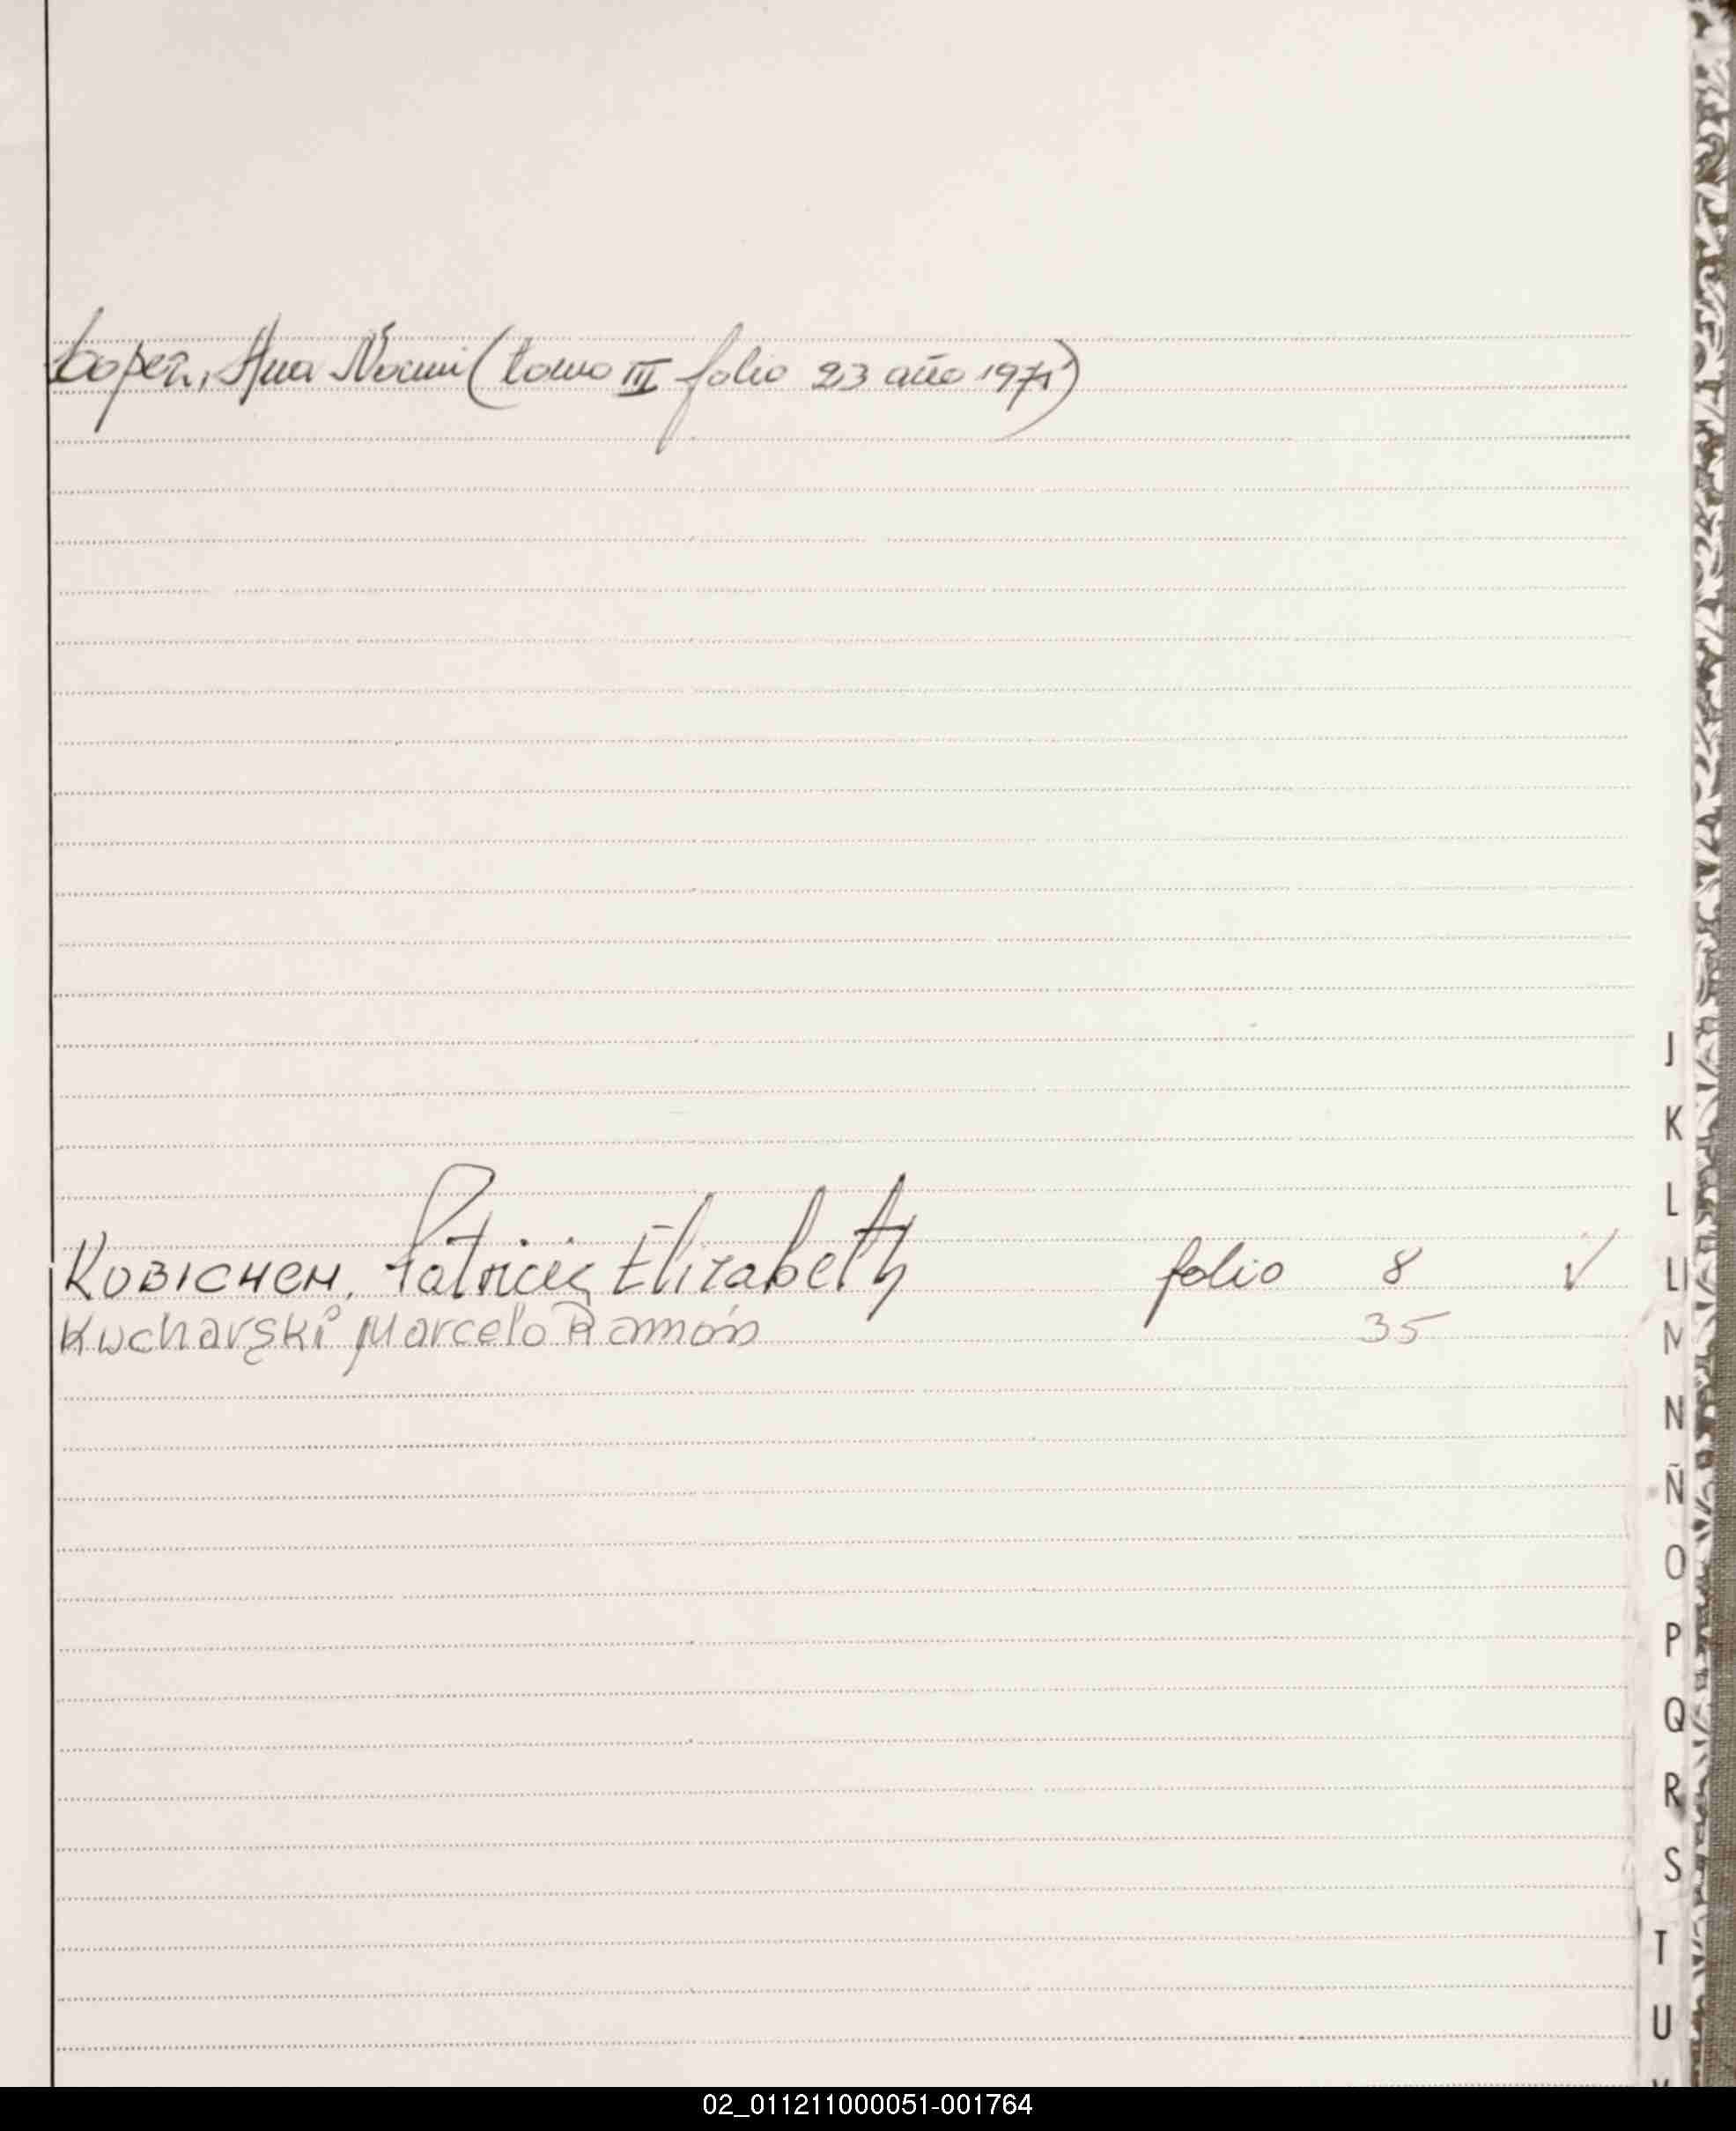 Lopez, Ana Noemi (tomo III folio 23 año 1971)
J
K
L
KUBICHEN, Patricia Elizabeth folio 8 ✓
Ll
Kucharski Marcelo Ramón 35
M
N
Ñ
O
P
Q
R
S
T
U
02_011211000051-001764